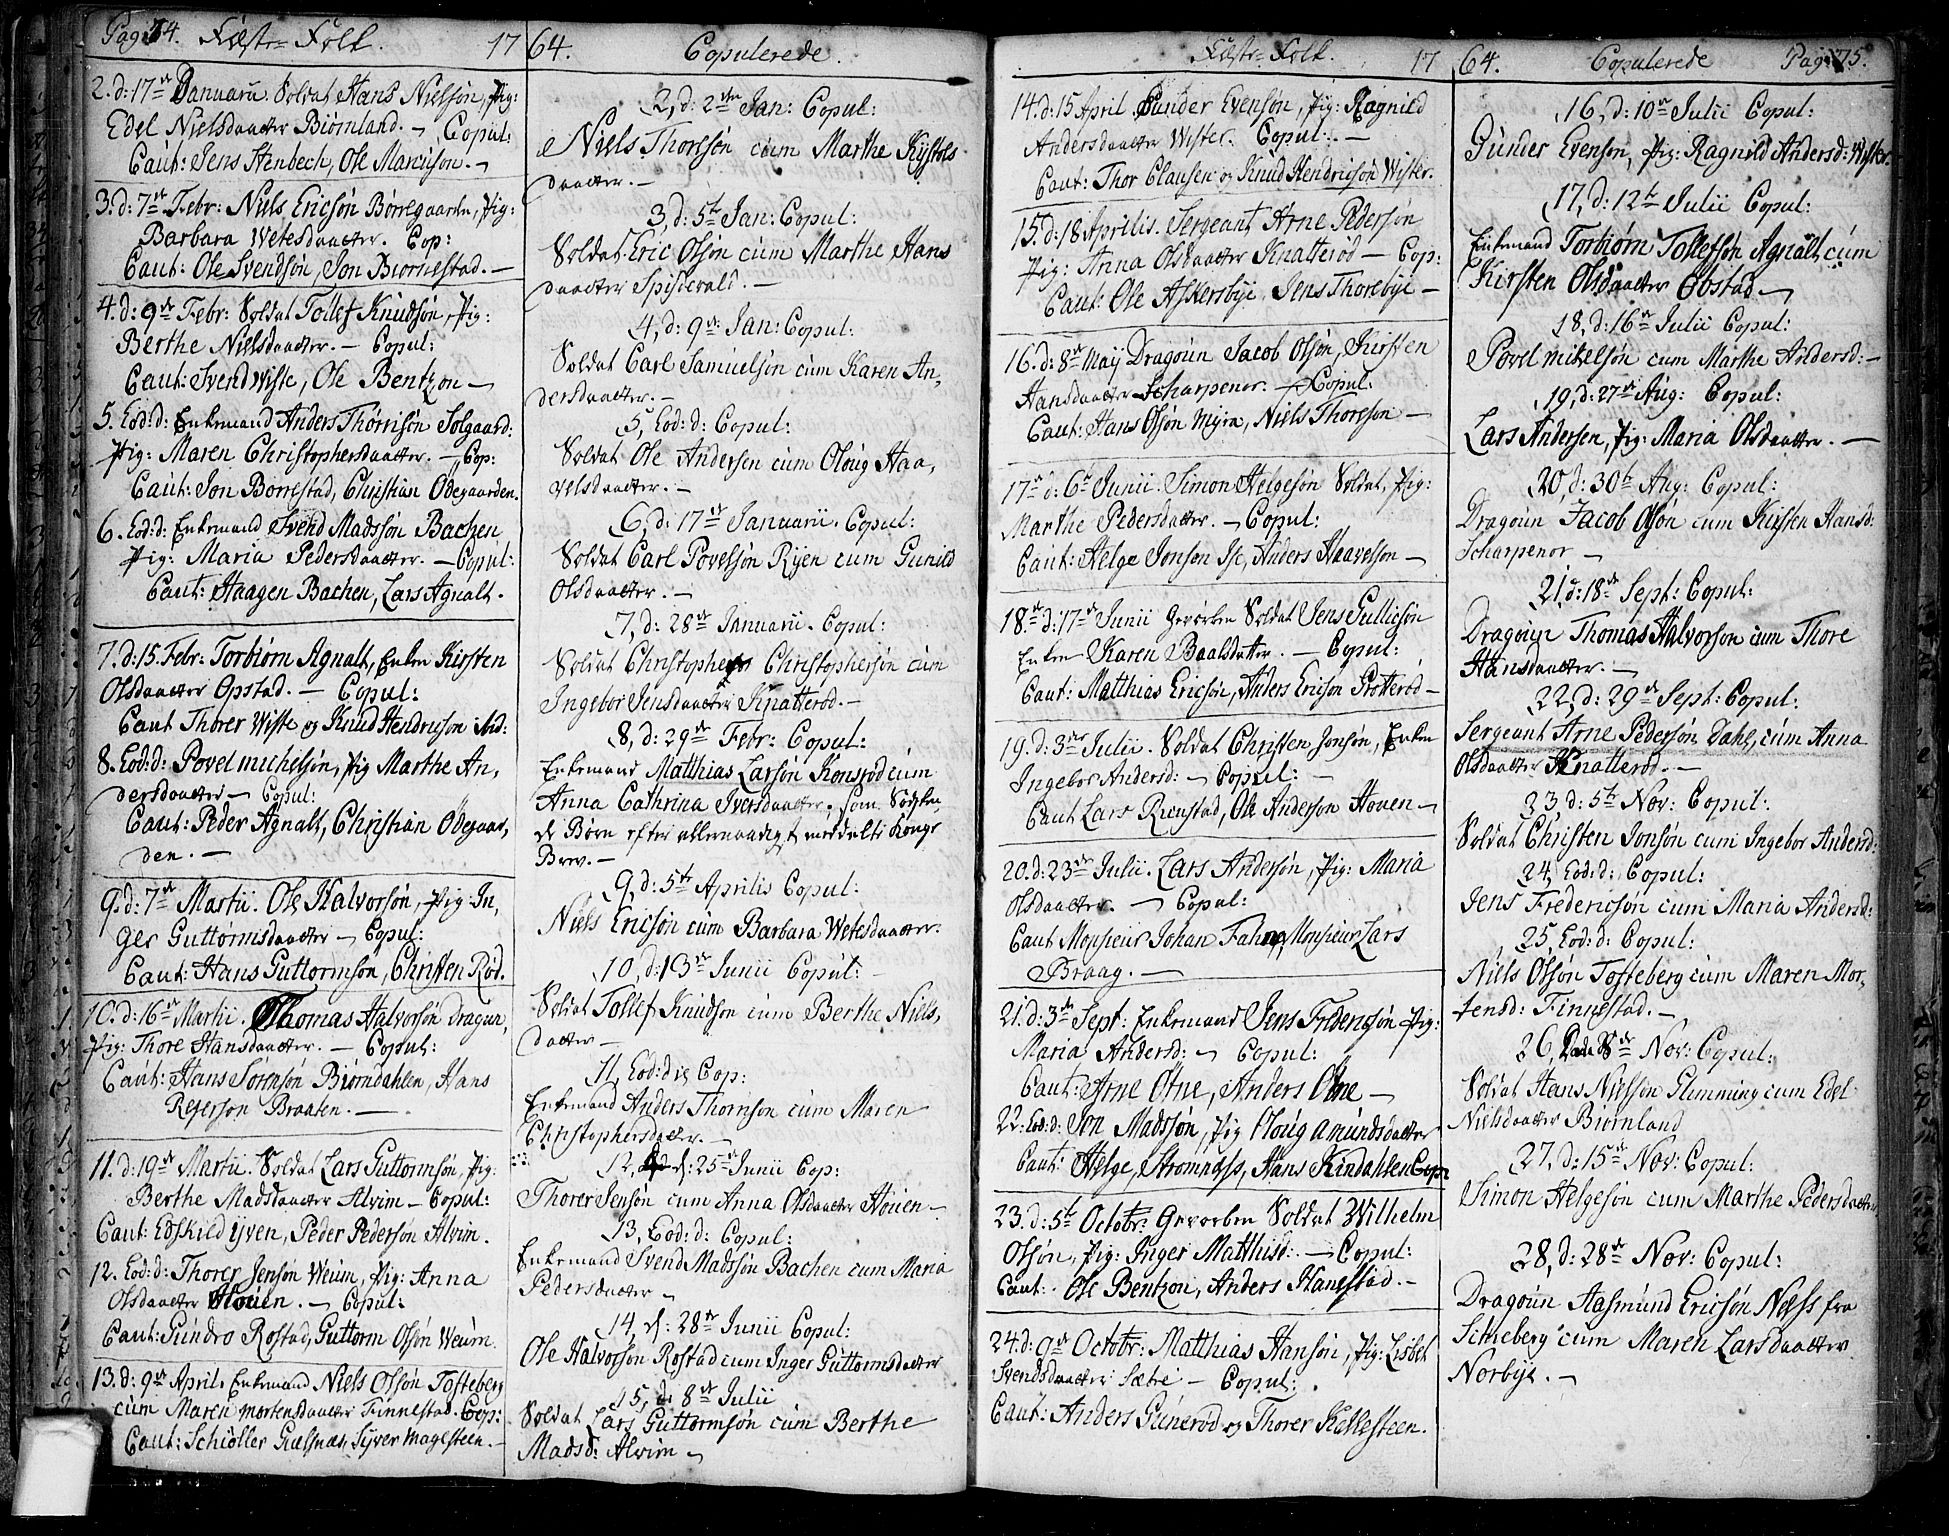 Pag: 74. Fæste-Folk. 17
2. d: 17de Januarii. Soldat Hans Nielsøn, Pig:
Edel Nielsdaatter Biørnland. - Copul:
Caut: Jens Stenbech, Ole Marcusøn. -
3. d: 7de Febr: Niels Ericsøn Børregaarden, Pig:
Barbara Wetesdaatter. Cop:
Caut: Ole Svendsøn, Jon Biørnestad. -
4. d: 9de Febr: Soldat Tollef Knudsøn, Pig:
Berthe Nielsdaatter. - Copul:
Caut: Svend Wiste, Ole Bentzon -
5. Eod: d: Enkemand Anders Thornsøn Solgaard:
Pig: Maren Christophersdaatter. - Cop:
Caut: Jon Børrestad, Christian Ødegaarden.
6. Eod: d: Enkemand Svend Madssøn Bachen
Pig: Maria Pedersdaatter. - Copul:
Caut: Haagen Bachen, Lars Agnalt.
7. d: 15. Febr: Torbiørn Agnalt, Enken Kirsten
Olsdaatter Opstad. - Copul:
Caut Thorer Wiste og Knud Hendricsøn ibid:
8. Eod: d: Povel michelsøn, Pig Marthe An,
dersdaatter - Copul:
Caut: Peder Agnalt, Christian Ødegaar,
den. -
9. d: 7de Martii. Ole Halvorsøn, Pig: In,
ger Guttormsdaatter - Copul:
Caut: Hans Guttormsøn, Christen Rød.
10. d: 16de Martii. Thomas Halvorsøn Dragun,
Pig: Thore Hansdaatter. - Copul:
Caut: Hans Sørensøn Biørndahlen, Hans
Rejerson Braaten. -
11. d: 19de Martii. Soldat Lars Guttormsøn, Pig:
Berthe Madsdaatter Alvim - Copul:
Caut: Edskild ijven, Peder Pedersøn Alvim.
12. Eod: d: Thorer Jensøn Weum, Pig: Anna
Olsdaatter Houen. - Copul:
Caut: Gundro Rostad, Guttorm Olsøn Weum.
13. d: 9de April. Enkemand Niels Olsøn Tofteberg
cum Maren Mortensdaatter Finnestad. Cop:
Caut: Schiøller Græsnæs, Syver Magesteen. -
64. Copulerede.
2, d: 2den Jan: Copul:
Niels Thorsøn cum Marthe Kystols
daatter. -
3, d: 5te Jan: Copul:
Soldat Eric Olsøn cum Marthe Hans
daatter Spydevald. -
4, d: 9de Jan: Copul:
Soldat Carl Samuelsøn cum Karen An,
dersdaatter. -
5, Eod: d: Copul:
Soldat Ole Andersen cum Oloug Haa,
velsdaatter. -
6, d: 17de Januarii. Copul:
Soldat Carl Povelsøn Ryen cum Gunild
Olsdaatter. -
7, d: 28de Januarii. Copul:
Soldat Christopher Christophersøn cum
Ingebor Jensdaatter Knatterød. -
8, d: 29de Febr: Copul:
Enkemand Matthias Larsøn Konsrød cum
Anna Cathrina Iversdaatter, som Sødsken
de Børn efter allernaadigst meddelte Konge
Brev. -
9, d: 5te Aprilis Copul:
Niels Ericsøn cum Barbara Wetesdaatter.
10, d: 13de Junii Copul:
Soldat Tollef Knudsøn cum Berthe Niels,
datter -
11, Eod: die Cop:
Enkemand Anders Thornson cum Maren
Christophersdatter. -
12, d: 25de Junii Cop:
Thorer Jensøn cum Anna Olsdaatter Houen -
13, Eod: d: Copul:
Enkemand Svend Madssøn Bachen cum Maria
Pedersdatter -
14, d: 28de Junii Copul:
Ole Halvorsøn Rostad cum Inger Guttormsdatter
15, d: 8de Julii
Soldat Lars Guttormsøn cum Berthe
Madsd: Alvim -
Fæste-Folk. 17
14. d: 15 April Gunder Evensøn, Pig: Ragnild
Andersdaatter Wister. Copul: -
Caut: Thor Clausen og Knud Hendricsøn Wister.
15. d: 18 Aprilis. Sergeant Arne Pedersøn
Pig: Anna Olsdaatter Knatterød - Cop:
Caut: Ole Askersbye, Jens Thorebye -
16. d: 8de May Dragoun Jacob Olsøn, Kirsten
Hansdaatter Scharpenor. - Copul:
Caut: Hans Olsøn Myra, Niels Thoresøn -
17de d: 6te Junii. Simon Helgesøn Soldat, Pig:
Marthe Pedersdatter. - Copul:
Caut: Helge Jonsøn Ise, Anders Haavelsøn -
18. d: 17de Junii Gevorben Soldat Jens Gullicsøn
Enken Karen Baalsdatter. - Copul:
Caut: Matthias Ericsøn, Anders Ericson Protterød -
19. d: 3die Julii. Soldat Christen Jonsøn, Enken
Ingebor Andersd: - Copul: -
Caut Lars Rienstad, Ole Andersøn Houen -
20. d: 23de Julii. Lars Andersøn, Pig: Maria
Olsdaatter. - Copul:
Caut Monsieur Johan Fahne, Monsieur Lars
Braag. -
21. d: 3de Sept: Enkemand Jens Fredericsøn Pig:
Maria Andersd: - Copul:
Caut: Arne Otne, Anders Otne -
22. Eod: d: Jon Madssøn, Pig Oloug Amundsdatter
Caut: Helge, Strømnæss, Hans Kindahlen Cop:
23. d: 5te Octobr: Gevorben Soldat Wilhelm
Olsøn, Pig: Inger Matthisd: - Copul:
Caut: Ole Bentzon, Anders Hanestad. -
24. d: 9de Octobr: Matthias Hansøn, Pig: Lisbet
Svendsdaatter Sætre - Copul:
Caut: Anders Gunerød og Thorer Kalkesteen.
64. Copulerede Pag: 75.
16, d: 10de Julii Copul:
Gunder Evensøn, Pig: Ragnild Andersd: Wister.
17, d: 12te Julii Copul:
Enkemand Torbiørn Tollefsøn Agnalt, cum
Kirsten Olsdaatter Obstad -
18, d: 16de Julii Copul:
Povel mikelsøn cum Marthe Andersd: -
19, d: 27de Aug: Copul:
Lars Andersen, Pig: Maria Olsdaatter. -
20, d: 30te Aug: Copul:
Dragoun Jacob Olsøn cum Kirsten Hansd:
Scharpenor -
21, d: 18de Sept: Copul:
Dragoun Thomas Halvorsøn cum Thore
Hansdaatter. -
22, d: 29de Sept: Copul:
Sergeant Arne Pedersøn Dahl, cum Anna
Olsdaatter Knatterød. -
23, d: 5te Nov: Copul:
Soldat Christen Jonsøn cum Ingebor Andersd:
24, Eod: d: Copul:
Jens Fredericsøn cum Maria Andersd:
25, Eod: d: Copul:
Niels Olsøn Tofteberg cum Maren Mor,
tensd: Finnestad. -
26, 8de Nov: Copul:
Soldat Hans Nielsøn Glimming cum Edel
Nielsdaatter Biørnland
27, d: 15de Nov: Copul:
Simon Helgesøn cum Marthe Pedersdaatter
28, d: 28de Nov: Copul:
Dragoun Aasmund Ericsøn Næss fra
Schieberg cum Maren Larsdaatter
Norbye. -